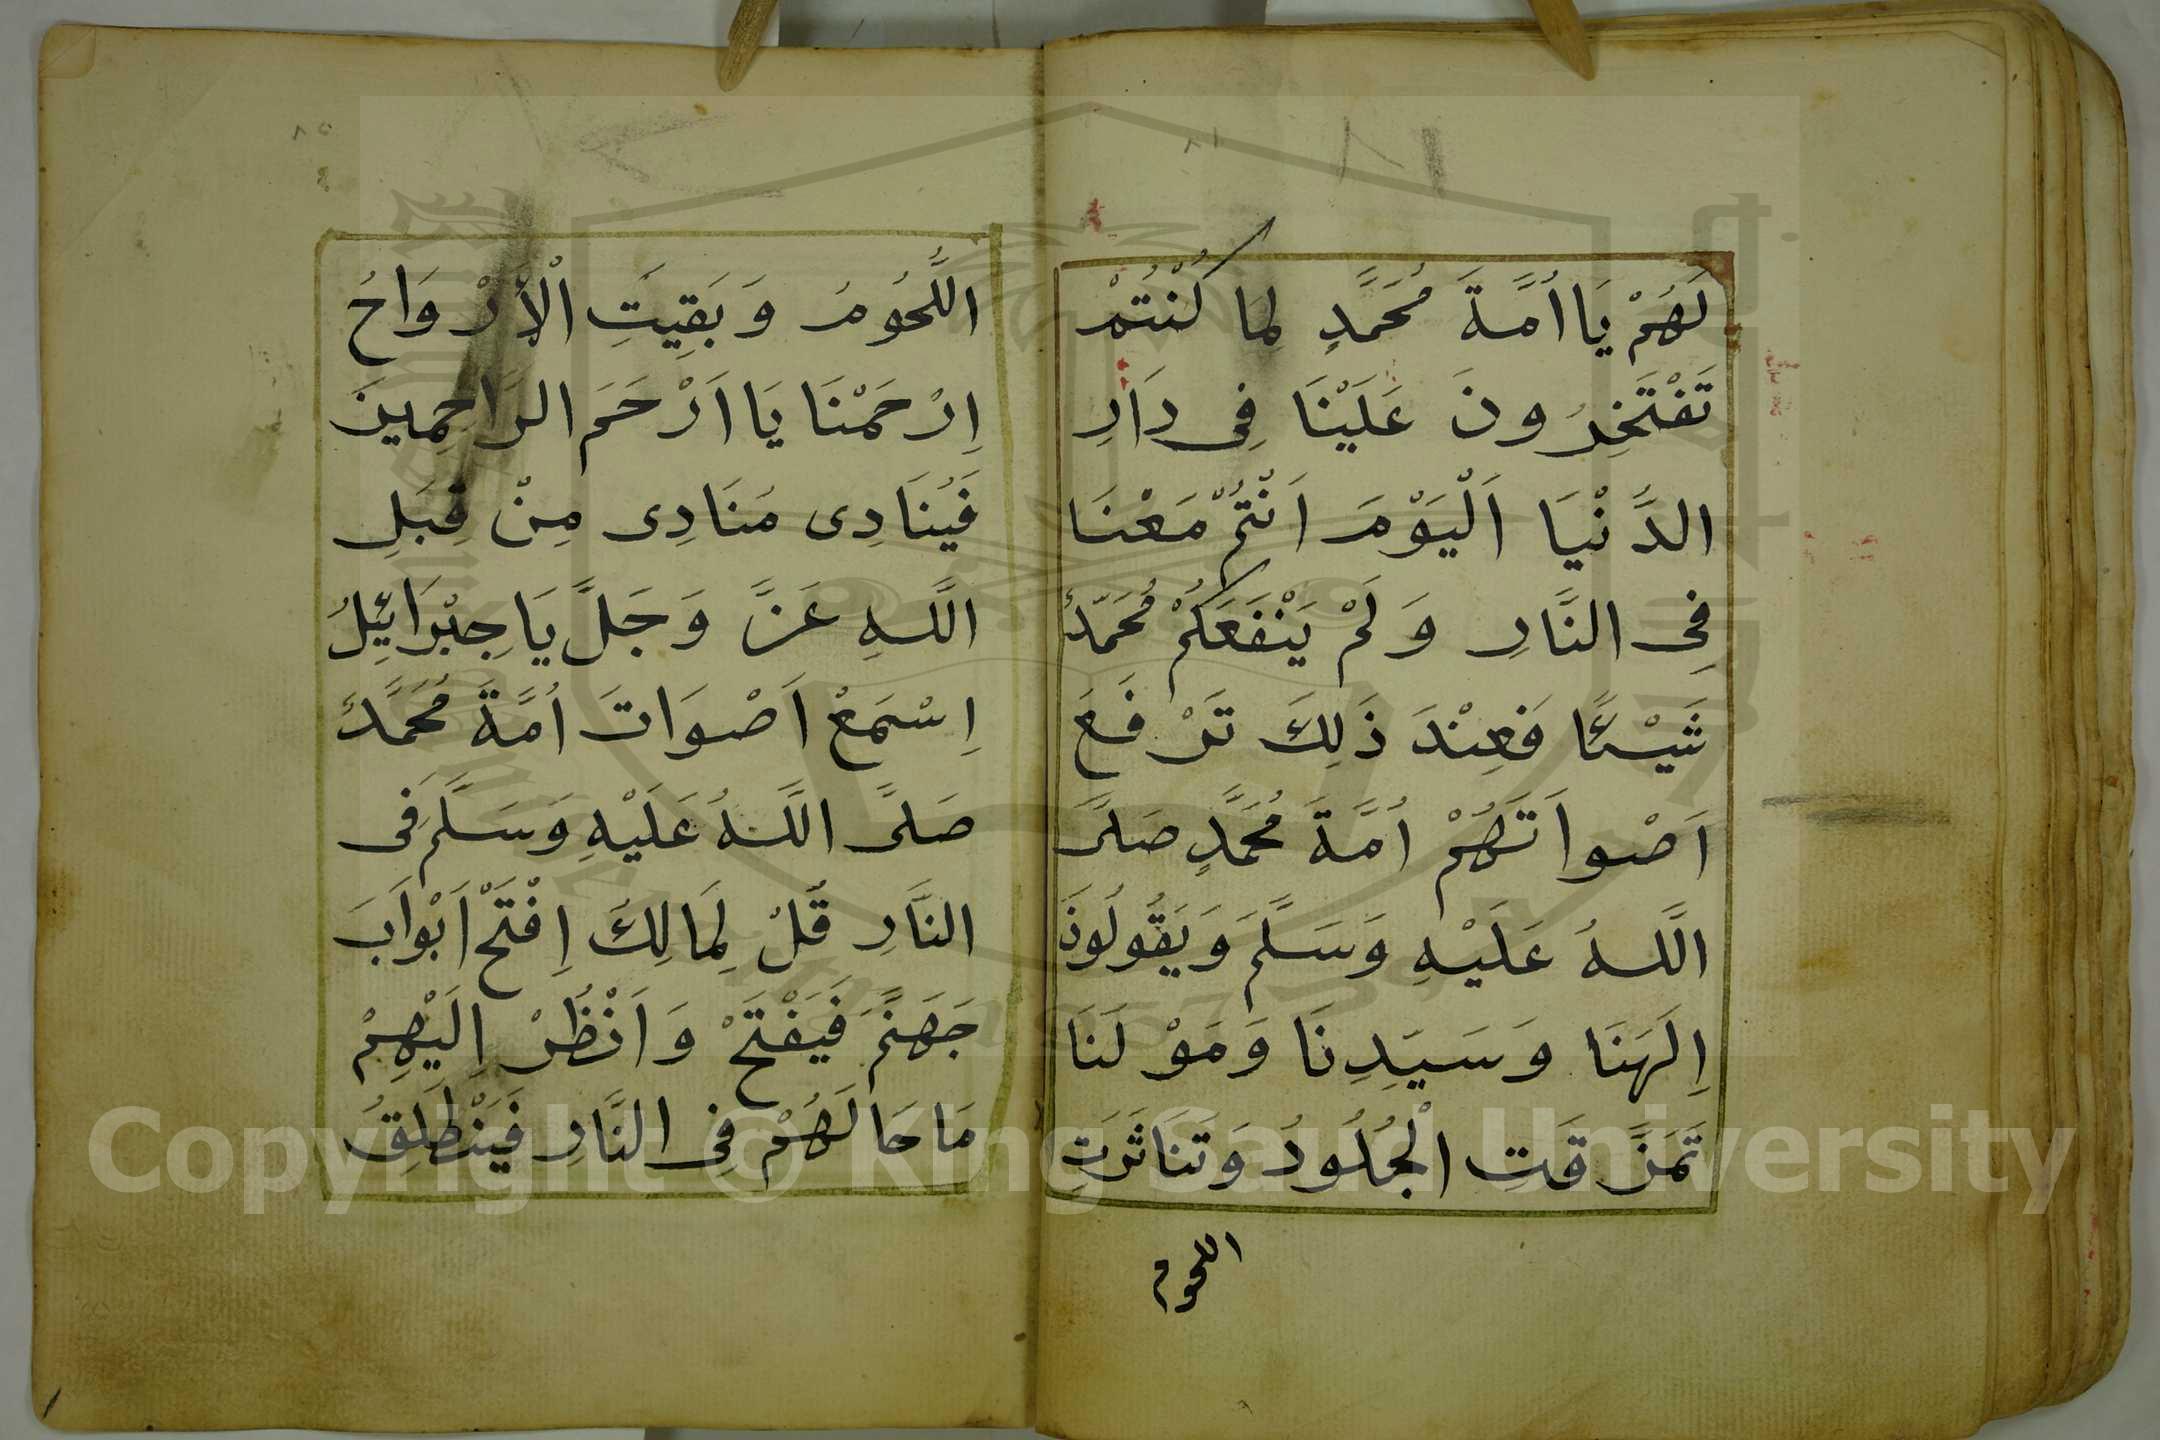 لَهُمْ يَا اُمَّةَ مُحَمَّدٍ لِمَا كُنْتُمْ
تَفْتَخِرُونَ عَلَيْنَا فِى دَارِ
الدُّنْيَا اَلْيَوْمَ اَنْتُمْ مَعْنَا
فِى النَّارِ وَلَمْ يَنْفَعَكُمْ مُحَمَّدٌ
شَيْئًا فَعِنْدَ ذَلِكَ تَرْفَعَ
اَصْواَتَهُمْ اُمَّةَ مُحَمَّدٍ صَلَّى
اللَّهُ عَلَيْهِ وَسَلَّمَ وَيَقُولُونَ
اِلَهَنَا وَسَيِّدِنَا وَمَوْلَنَا
تَمَزَّقَتِ الْجُلُودُ وَتَنَاثَرَتِ
اللحوم
اللُّحُومُ وَبَقِيَتِ الْأَرْوَاحُ
اِرْحَمْنَا يَا اَرْحَمَ الرَّاحِمِينَ
فَيُنَادِى مُنَادِى مِنْ قِبَلِ
اللَّهِ عَزَّ وَجَلَّ يَا جِبْرَائِلُ
اِسْمَعْ اَصْوَاتَ اُمَّةَ مُحَمَّدٌ
صَلَّى اللَّهُ عَلَيْهِ وَسَلَّمَ فِى
النَّارِ قُلْ لِمَالِكَ اِفْتَحْ اَبْوَابَ
جَهَنَّمَ فَيَفْتَحْ وَاَنْظُرْ اِلَيْهِمْ
مَا حَالَهُمْ فِى النَّارِ فَيَنْطَلِقُ
Copyright © King Saud University